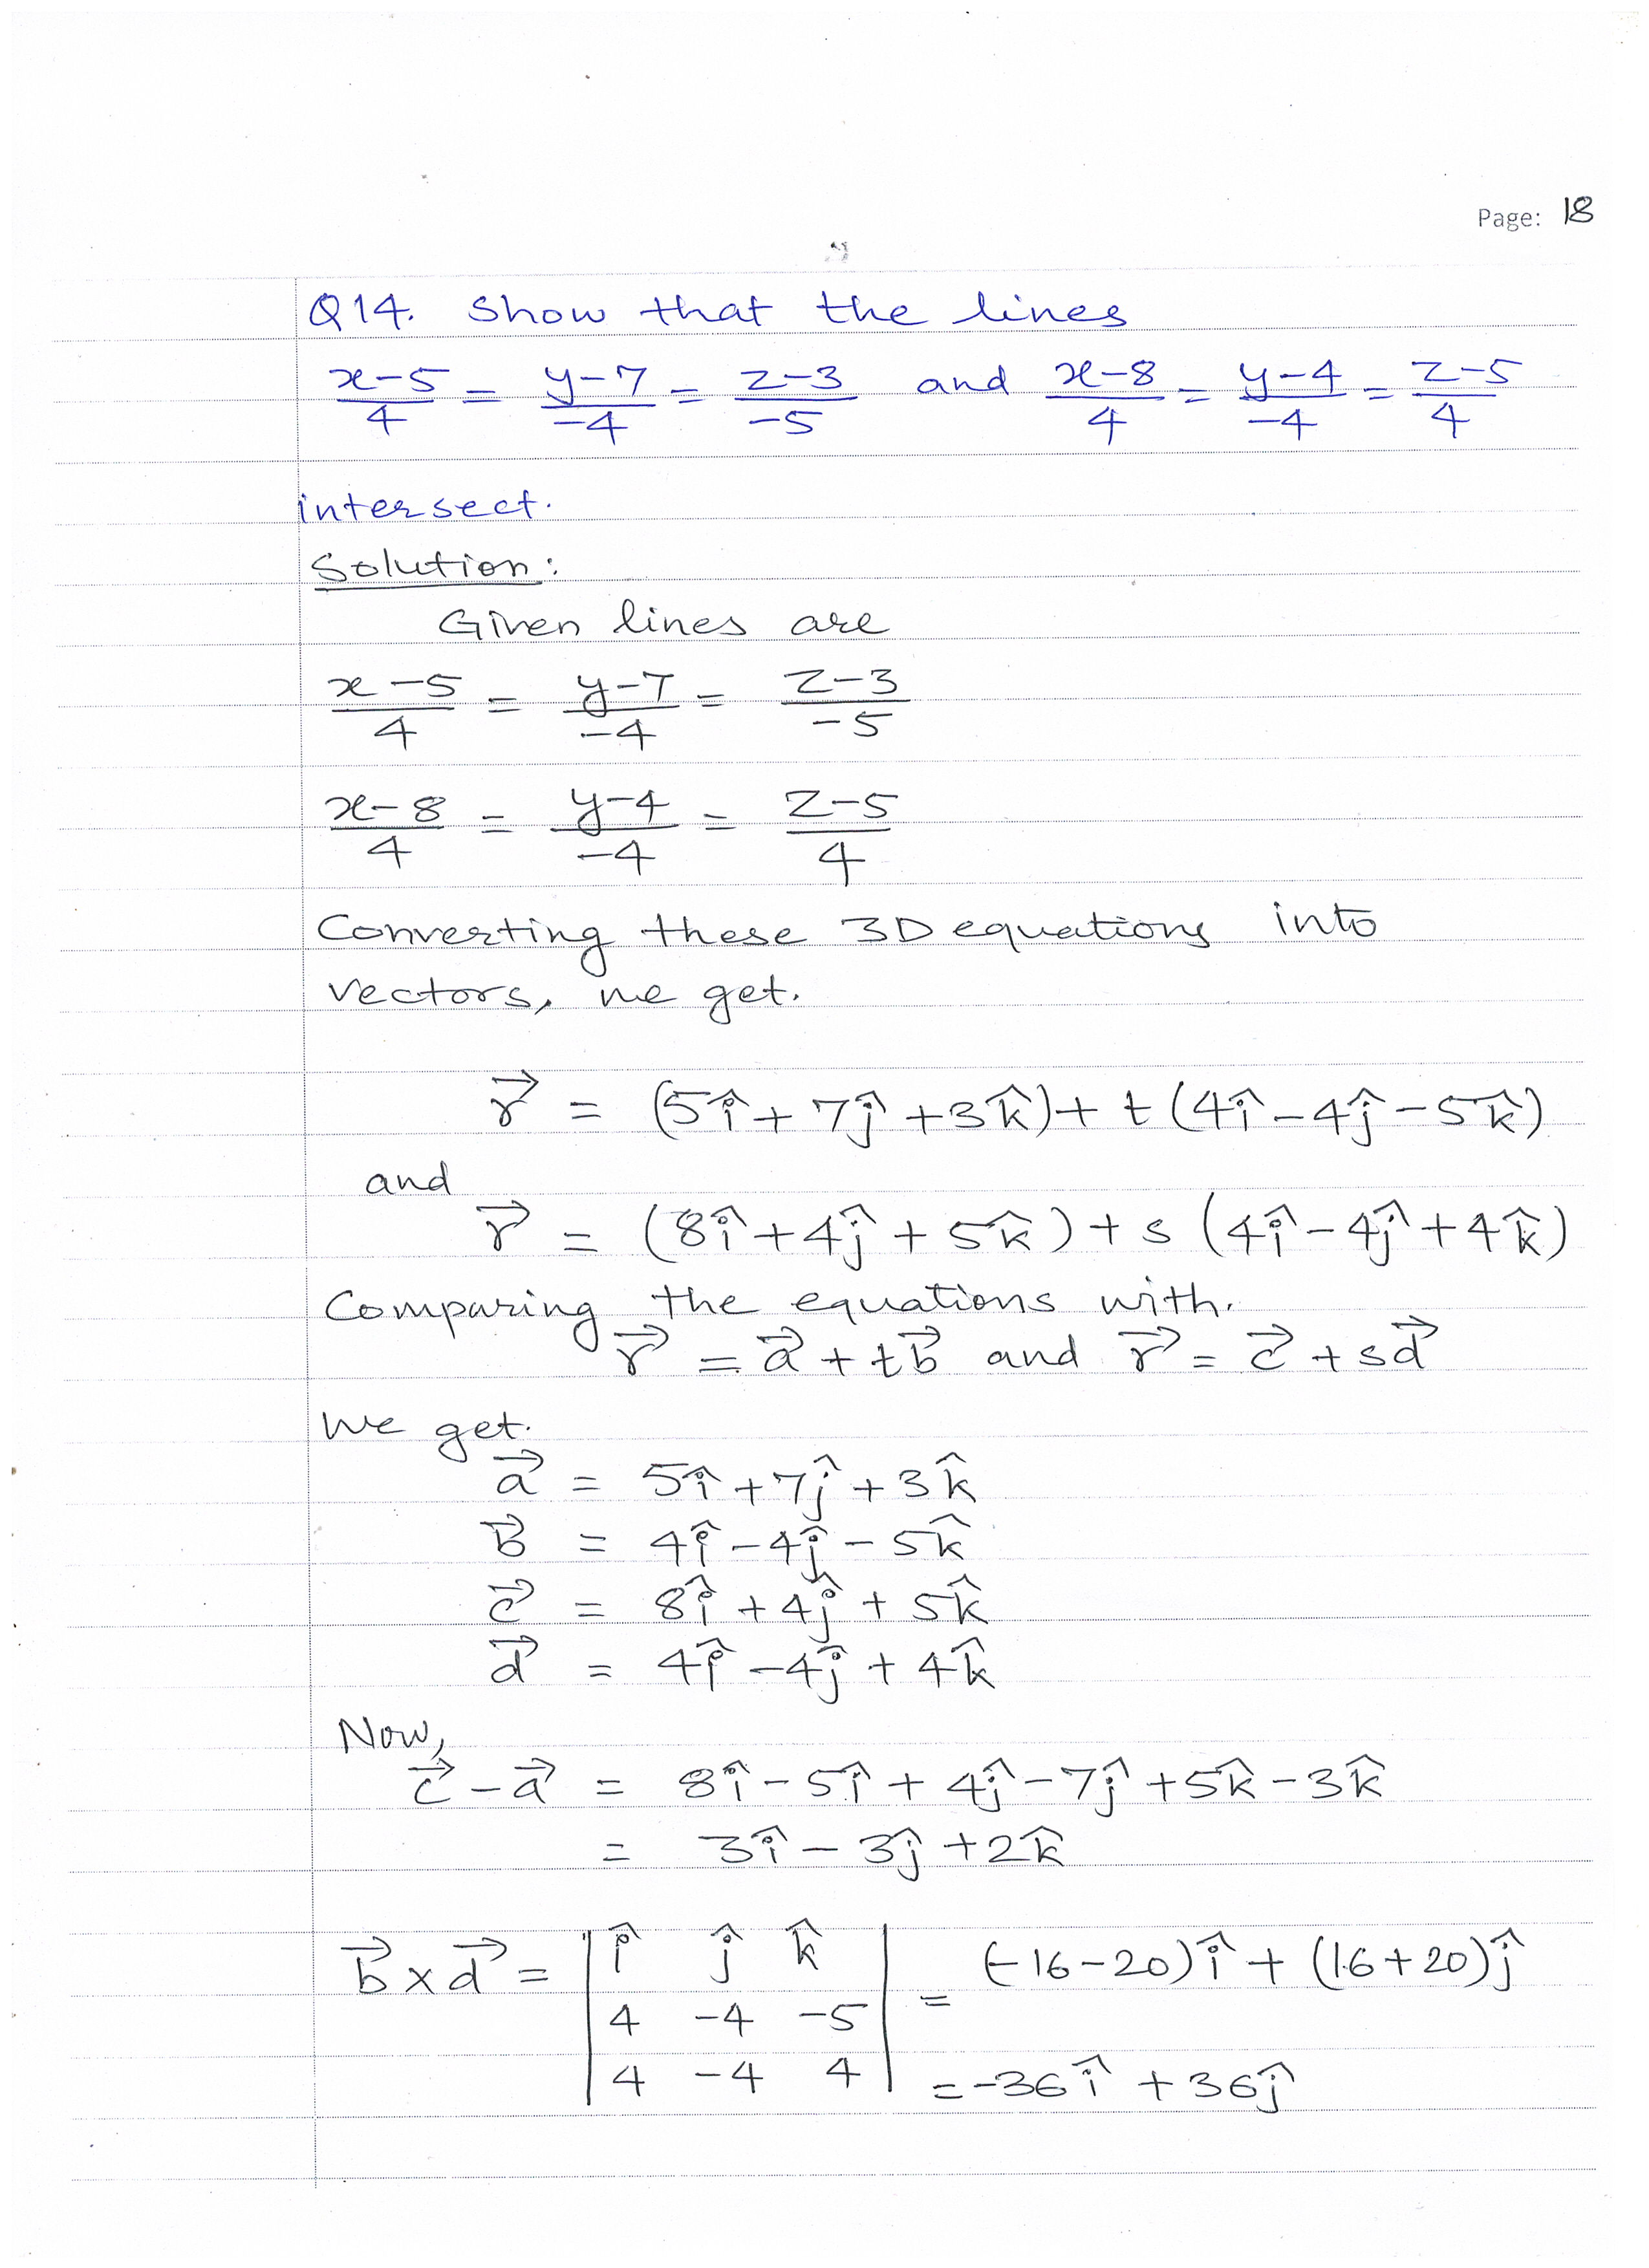 Page: 18
Q14. Show that the lines
(x-5)/4 = (y-7)/-4 = (z-3)/-5 and (x-8)/4 = (y-4)/-4 = (z-5)/4
intersect.
Solution:
Given lines are
(x-5)/4 = (y-7)/-4 = (z-3)/-5
(x-8)/4 = (y-4)/-4 = (z-5)/4
Converting these 3D equations into
vectors, we get.
r⃗ = (5î + 7ĵ + 3k̂) + t (4î - 4ĵ - 5k̂)
and
r⃗ = (8î + 4ĵ + 5k̂) + s (4î - 4ĵ + 4k̂)
Comparing the equations with.
r⃗ = a⃗ + tb⃗ and r⃗ = c⃗ + sd⃗
We get.
a⃗ = 5î + 7ĵ + 3k̂
b⃗ = 4î - 4ĵ - 5k̂
c⃗ = 8î + 4ĵ + 5k̂
d⃗ = 4î - 4ĵ + 4k̂
Now,
c⃗ - a⃗ = 8î - 5î + 4ĵ - 7ĵ + 5k̂ - 3k̂
= 3î - 3ĵ + 2k̂
b⃗ x d⃗ = | î ĵ k̂ | = (-16-20)î + (16+20)ĵ
| 4 -4 -5 |
| 4 -4 4 | = -36î + 36ĵ